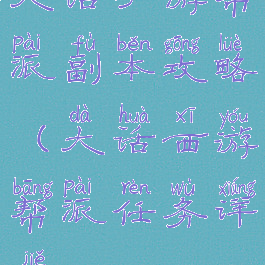 大话手游帮
pài fù běn gōng lüè
派副本攻略
dà huà xī yóu
（大话西游
bāng pài rèn wù xiáng
帮派任务详
jiě